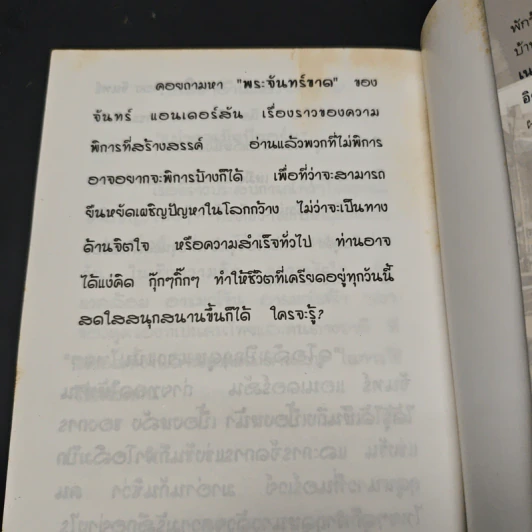 คอยถามหา "พระจันทร์ขาด" ของ
จันทร์ แอนเดอร์สัน เรื่องราวของความ
พิการที่สร้างสรรค์ อ่านแล้วพวกที่ไม่พิการ
อาจอยากจะพิการบ้างก็ได้ เพื่อที่ว่าจะสามารถ
ยืนหยัดเผชิญปัญหาในโลกกว้าง ไม่ว่าจะเป็นทาง
ด้านจิตใจ หรือความสำเร็จทั่วไป ท่านอาจ
ได้แง่คิด กุ๊กๆกิ๊กๆ ทำให้ชีวิตที่เครียดอยู่ทุกวันนี้
สดใสสนุกสนานขึ้นก็ได้ ใครจะรู้?